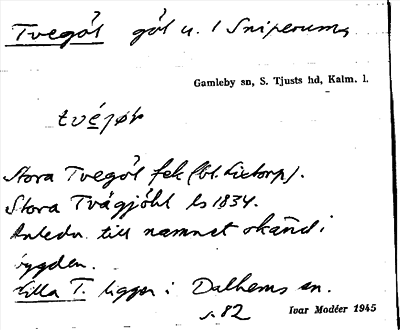 Tvegöl göl u. / Sniperum,
Gamleby sn, S. Tjusts hd, Kalm. l.
tvéjør
Stora Tvegöl fek (bl. Lixtorp).
Stora Tvägjöhl ls 1834.
Anledn. till namnet okänd i
bygden.
Lilla T. ligger i Dalhems sn.
s. 82
Ivar Modéer 1945